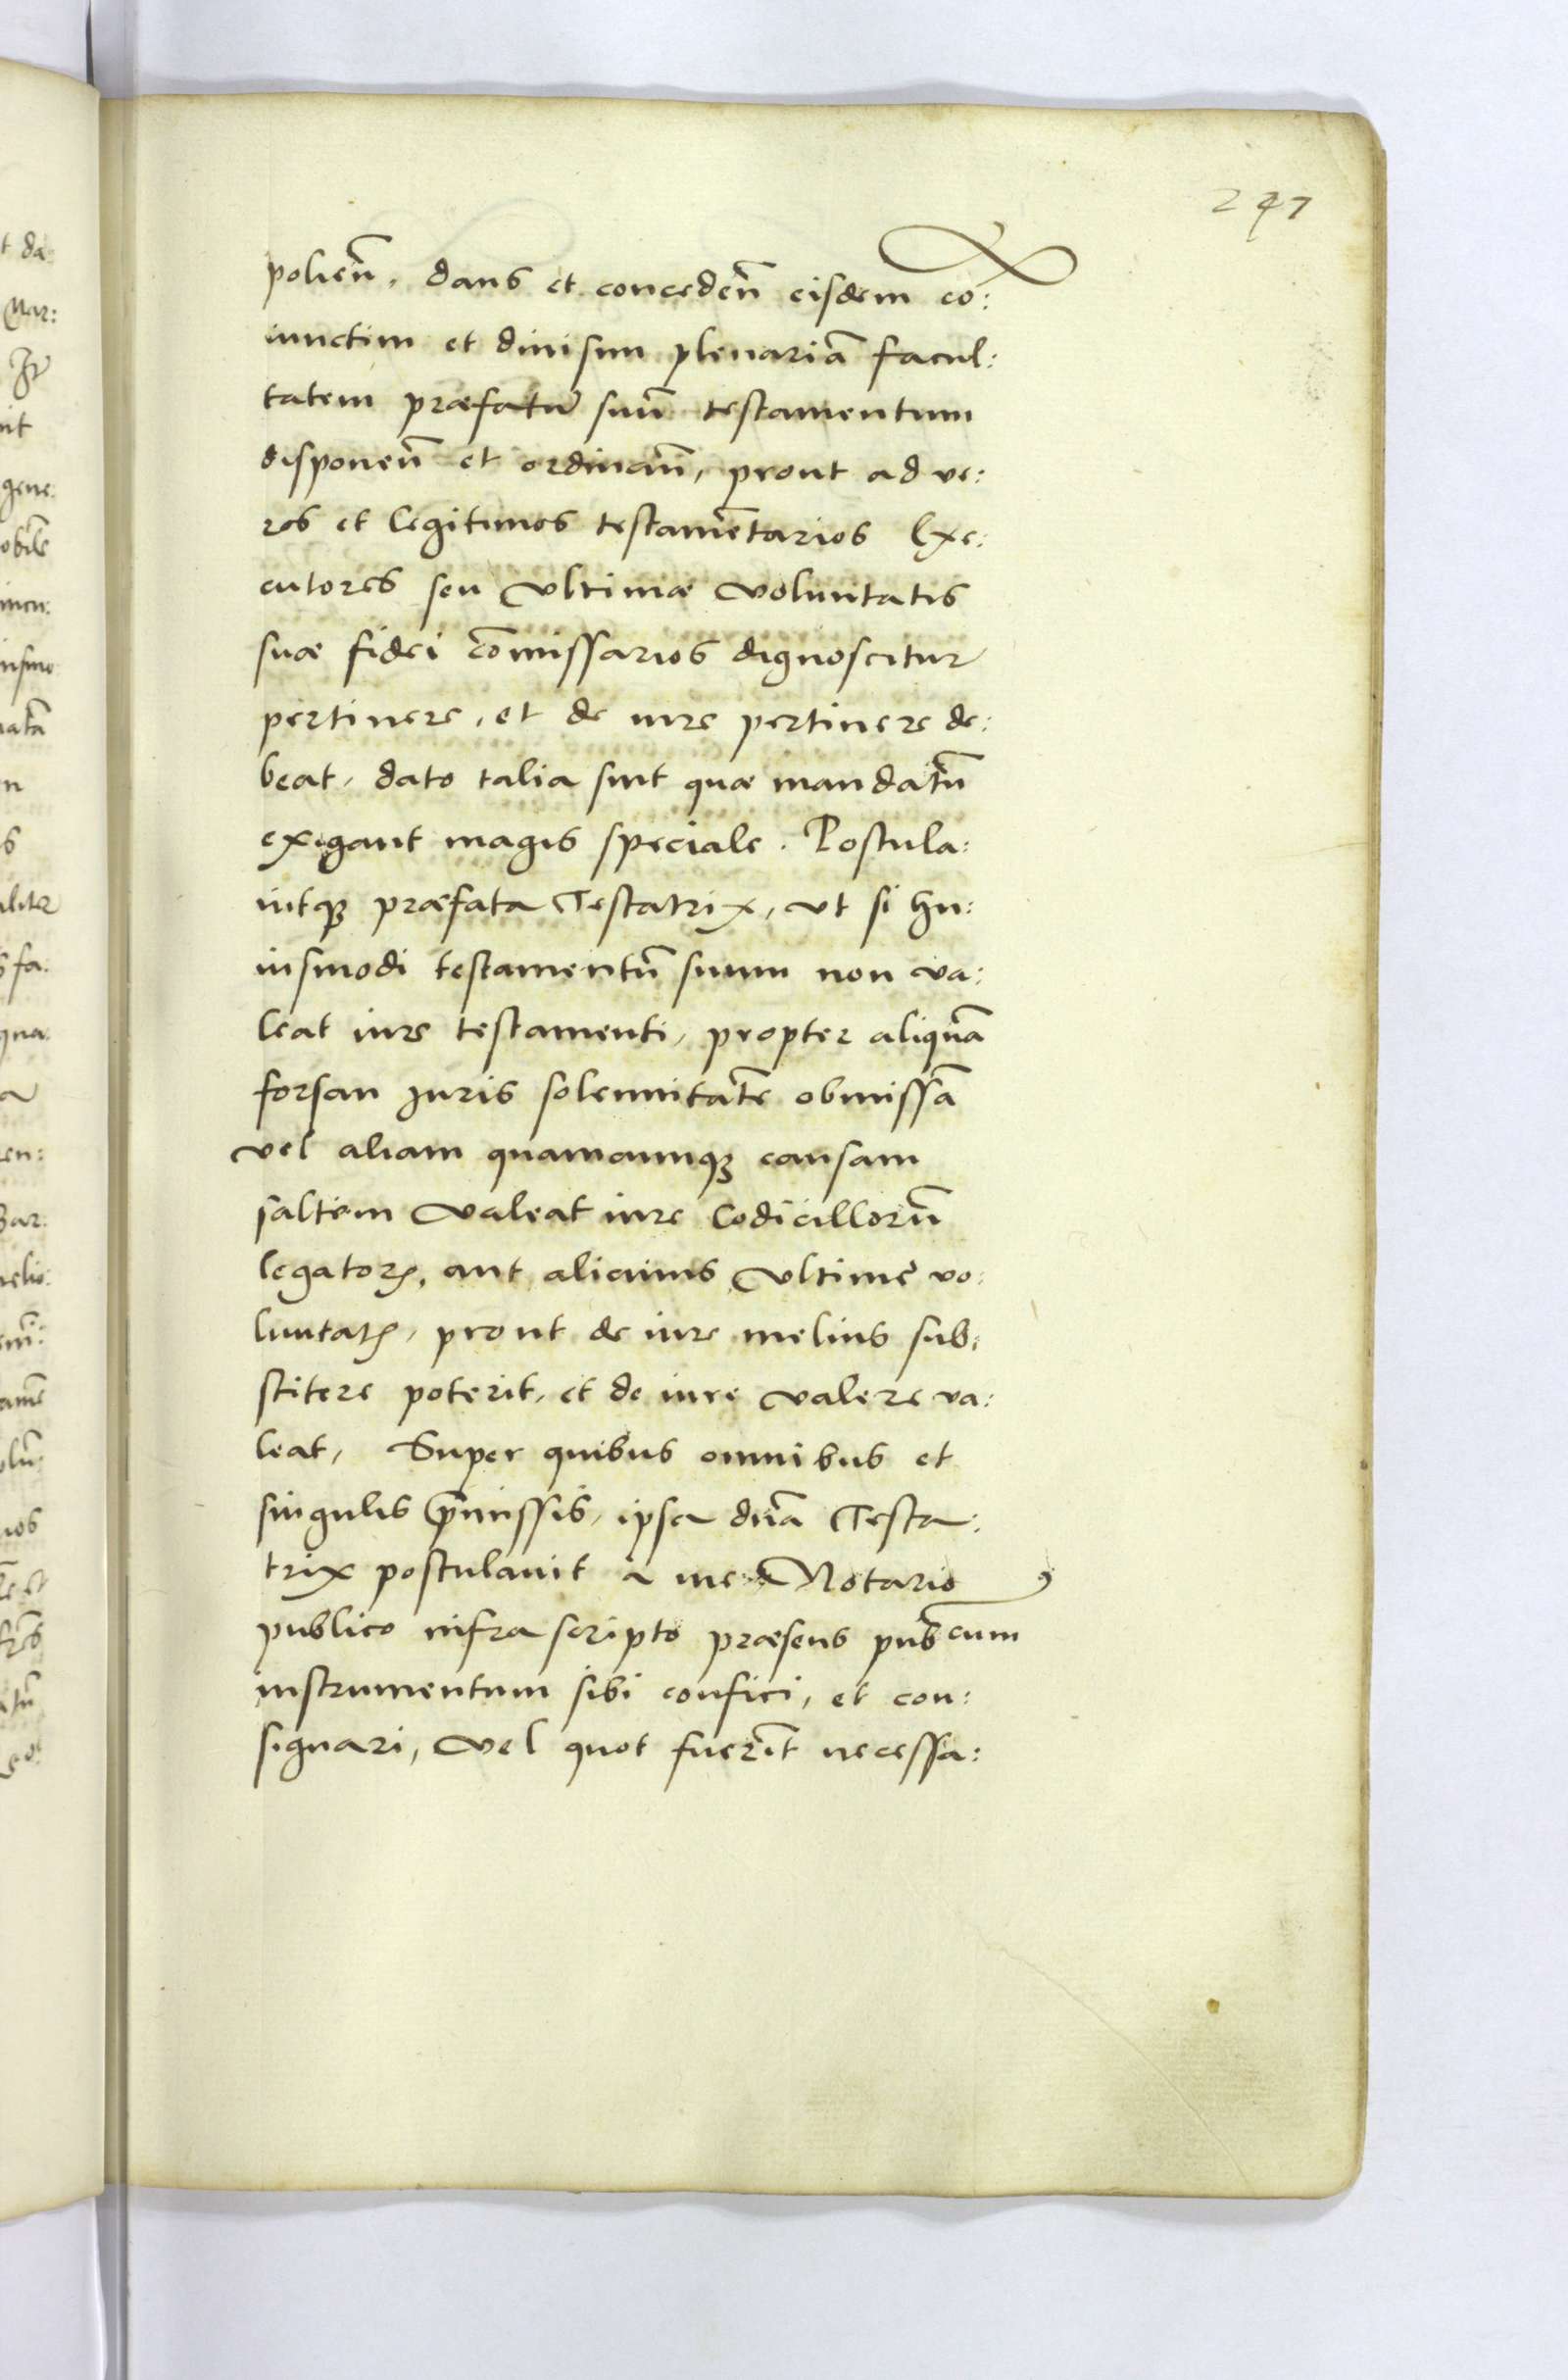 247
polien̄, dans et conceden̄ eisdem co:
iunctim et diuisim plenariā facul:
tatem præfatū suū testamentum
disponen̄ et ordinan̄, prout ad ve:
ros et legitimos testamētarios Exe:
cutores seu vltimæ voluntatis
suæ fidei cōmissarios dignoscitur
pertinere, et de iure pertinere de:
beat, dato talia sint quæ mandatū
exigant magis speciale. Postula:
uitqꝫ præfata Testatrix, vt si hu:
iusmodi testamentū suum non va:
leat iure testamenti, propter aliquā
forsan Juris solennitatē obmissā
vel aliam quamcumqꝫ causam
saltem valeat iure Codicillorū
legatoꝝ, aut alicuius vltimę vo:
luntatꝭ, prout de iure melius sub:
stitere poterit, et de iure valere va:
leat, Super quibus omnibus et
singulis p̄missis, ipsa dn̄a Testa:
trix postulauit a me Notario
publico infra scripto præsens pub̄cum
instrumentum sibi confici, et con:
signari, vel quot fuerīt necessa: